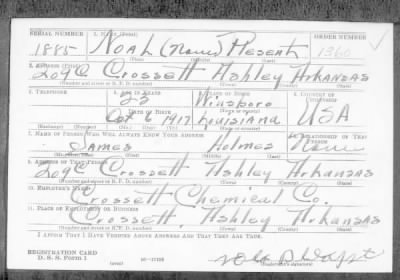 SERIAL NUMBER 1. NAME (Print) ORDER NUMBER
1885 NOAh (None) Present 1360
(First) (Middle) (Last)
2. ADDRESS (Print)
209C Crossett Ashley Arkansas
(Number and street or R. F. D. number) (Town) (County) (State)
3. TELEPHONE 4. AGE IN YEARS 5. PLACE OF BIRTH 6. COUNTRY OF CITIZENSHIP
23 Winsboro
DATE OF BIRTH (Town or county)
Oct 6 1917 Louisiana USA
(Exchange) (Number) (Mo.) (Day) (Yr.) (State or country)
7. NAME OF PERSON WHO WILL ALWAYS KNOW YOUR ADDRESS 8. RELATIONSHIP OF THAT PERSON
James Holmes None
(Mr., Mrs., Miss) (First) (Middle) (Last)
9. ADDRESS OF THAT PERSON
209C Crossett Ashley Arkansas
(Number and street or R. F. D. number) (Town) (County) (State)
10. EMPLOYER'S NAME
Crossett Chemical Co.
11. PLACE OF EMPLOYMENT OR BUSINESS
Crossett, Ashley Arkansas
(Number and street or R. F. D. number) (Town) (County) (State)
I AFFIRM THAT I HAVE VERIFIED ABOVE ANSWERS AND THAT THEY ARE TRUE.
REGISTRATION CARD
D. S. S. Form 1 (over)
(Registrant's signature)